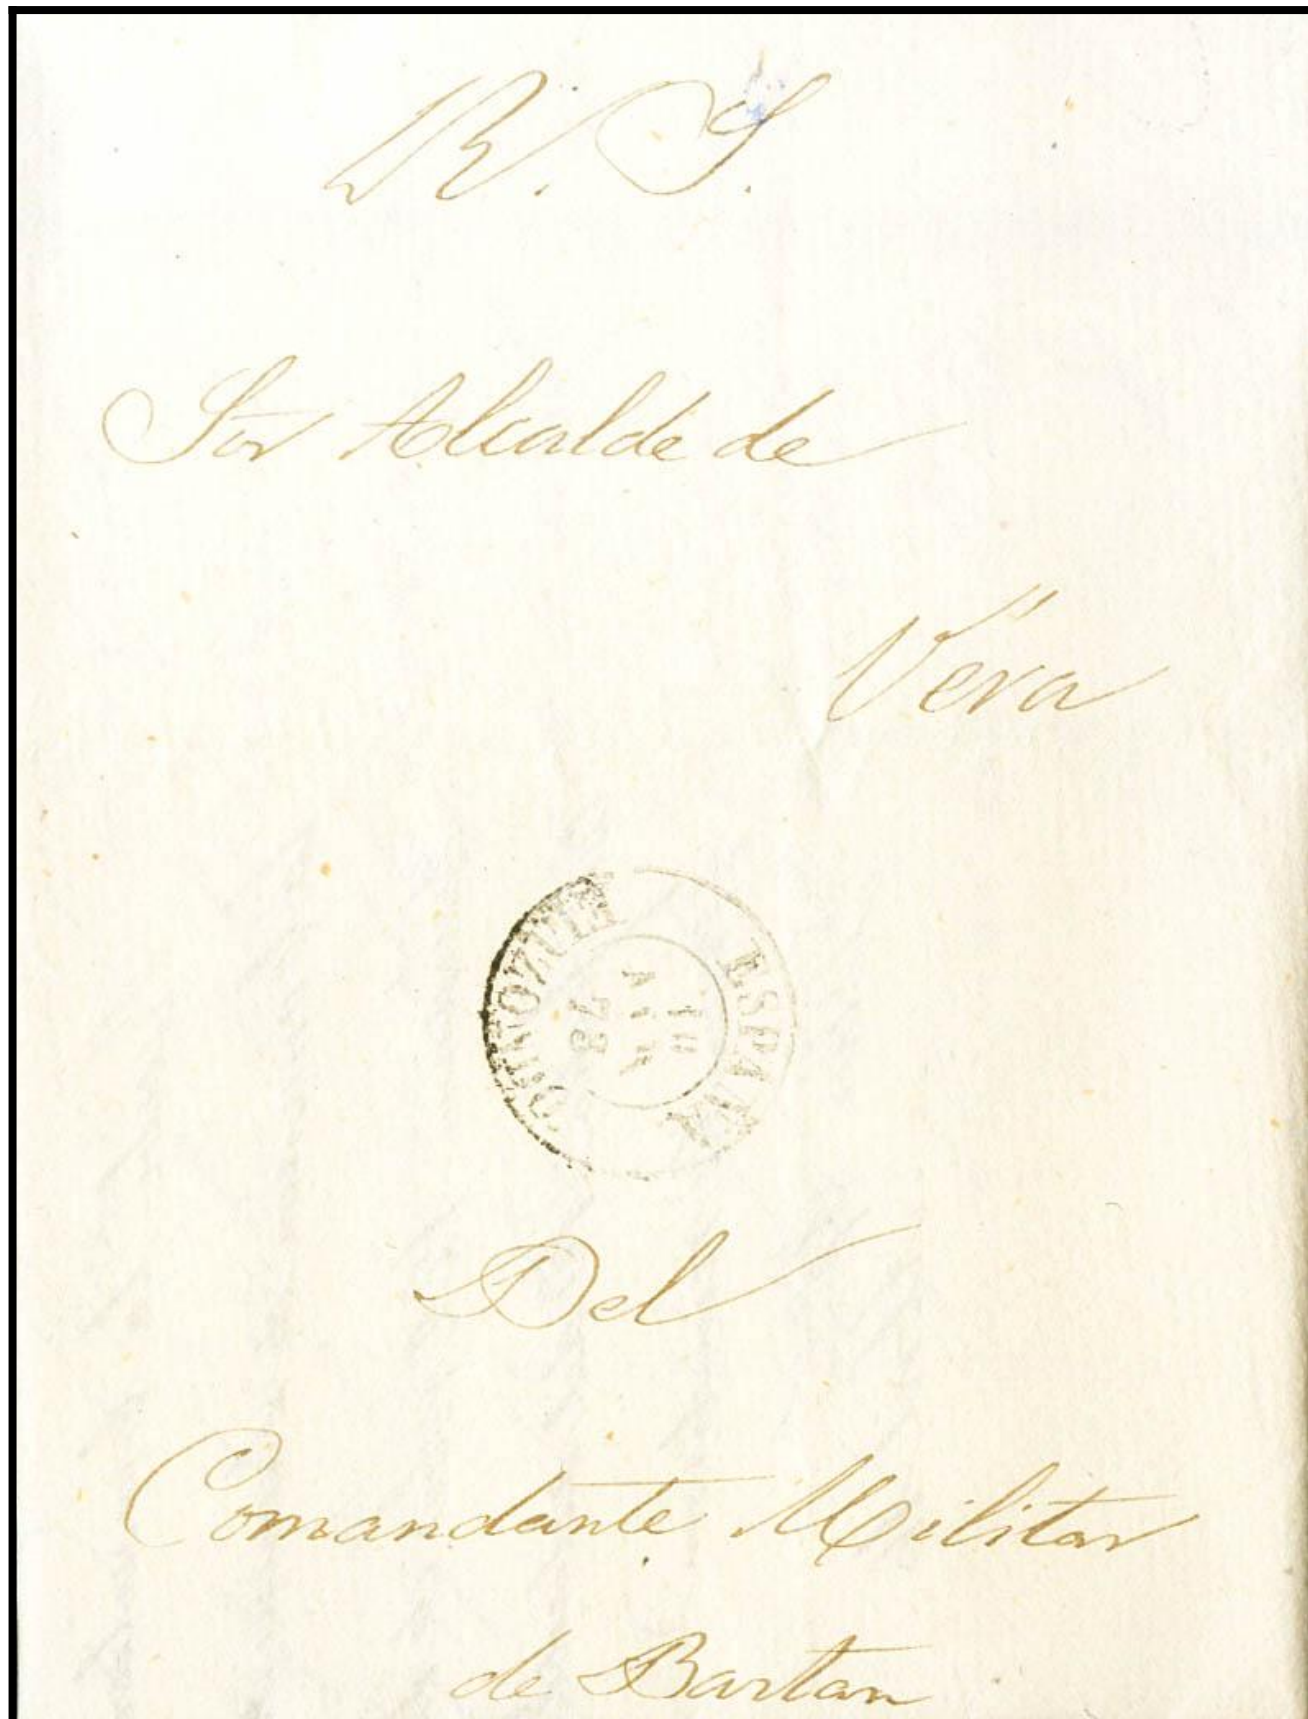 R. S.
Sor Alcalde de
Vera
ESPAÑA
73
ELIZONDO
Del
Comandante Militar
de Bastan